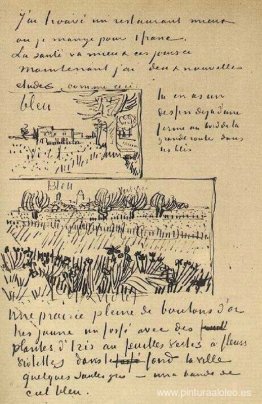 J'ai trouvé un restaurant mieux
ou je mange pour 1 franc.
La santé va mieux ces jours ci
Maintenant j'ai deux nouvelles
etudes comme ceci
bleu
tu en as un
dessin deja d'une
ferme au bord de la
grande route dans
les blés
Bleu
Une prairie pleine de boutons d'or
très jaune un fossé avec des
plantes d'iris au feuilles vertes à fleurs
violettes dans le fond la ville
quelques saules gris – une bande de
ciel bleu.
www.pinturaaloleo.es